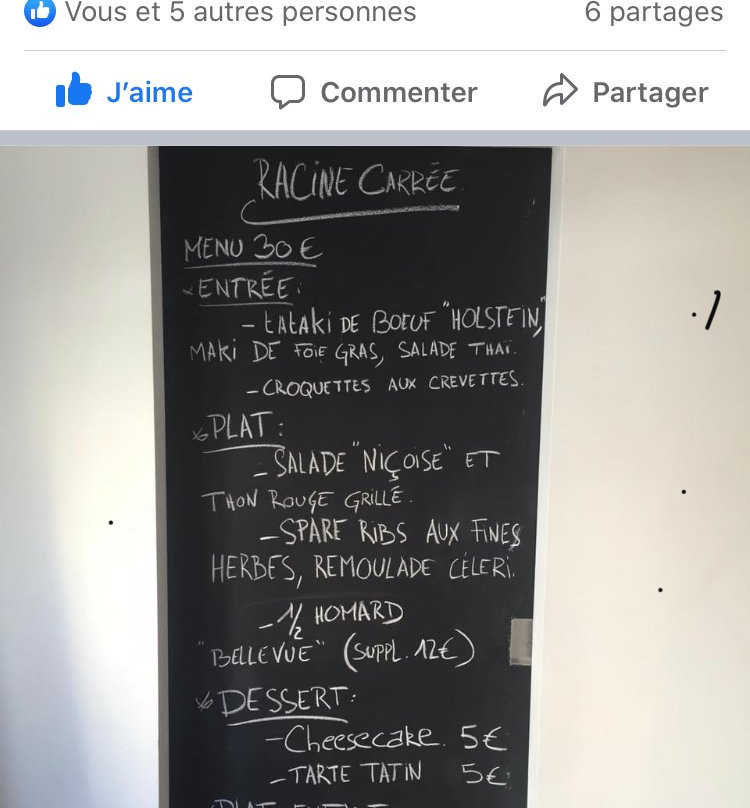 Vous et 5 autres personnes 6 partages
J'aime Commenter Partager
RACINE CARRÉE
MENU 30 €
ENTRÉE:
- tATAKi DE BOEUF "HOLSTEiN,"
MAKi DE FOiE GRAS, SALADE THAï.
- CROQUETTES AUX CREVETTES.
PLAT:
- SALADE "NiÇOiSE" ET
THON ROUGE GRiLLÉ.
- SPARE RiBS AUX FiNES
HERBES, REMOULADE CÉLERi.
- 1/2 HOMARD
"BELLEVUE" (SUPPL. 12€)
DESSERT:
- Cheesecake. 5€
- TARTE TATiN 5€